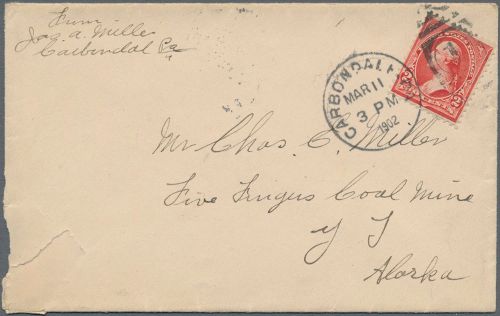 From
Jas. A. Miller
Carbondal Pa
CARBONDALE
MAR 11
3 PM
1902
2 CENTS 2
Mr Chas. C. Miller
Five Fingus Coal Mine
Y T
Alaska